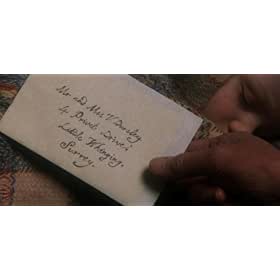 Mr and Mrs V Dursley
4 Privet Drive;
Little Whinging,
Surrey.